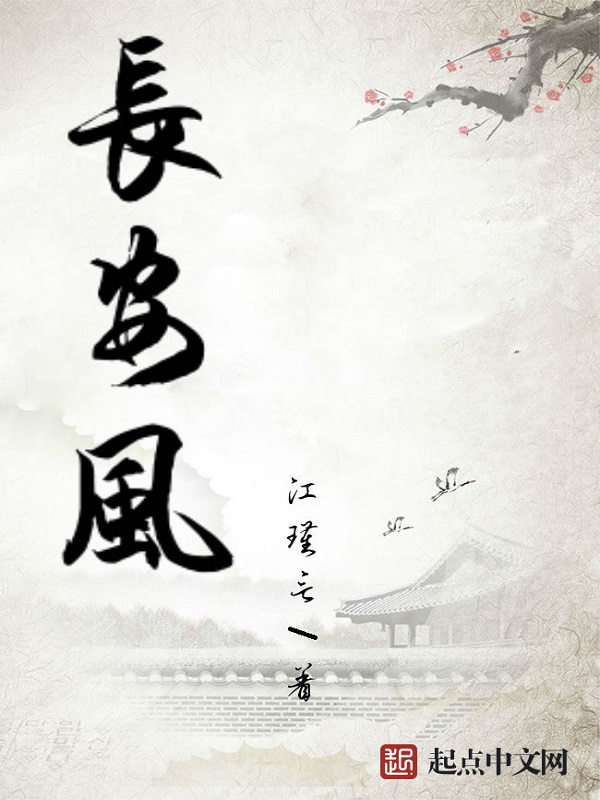 長安風
江瑾言 著
起点中文网